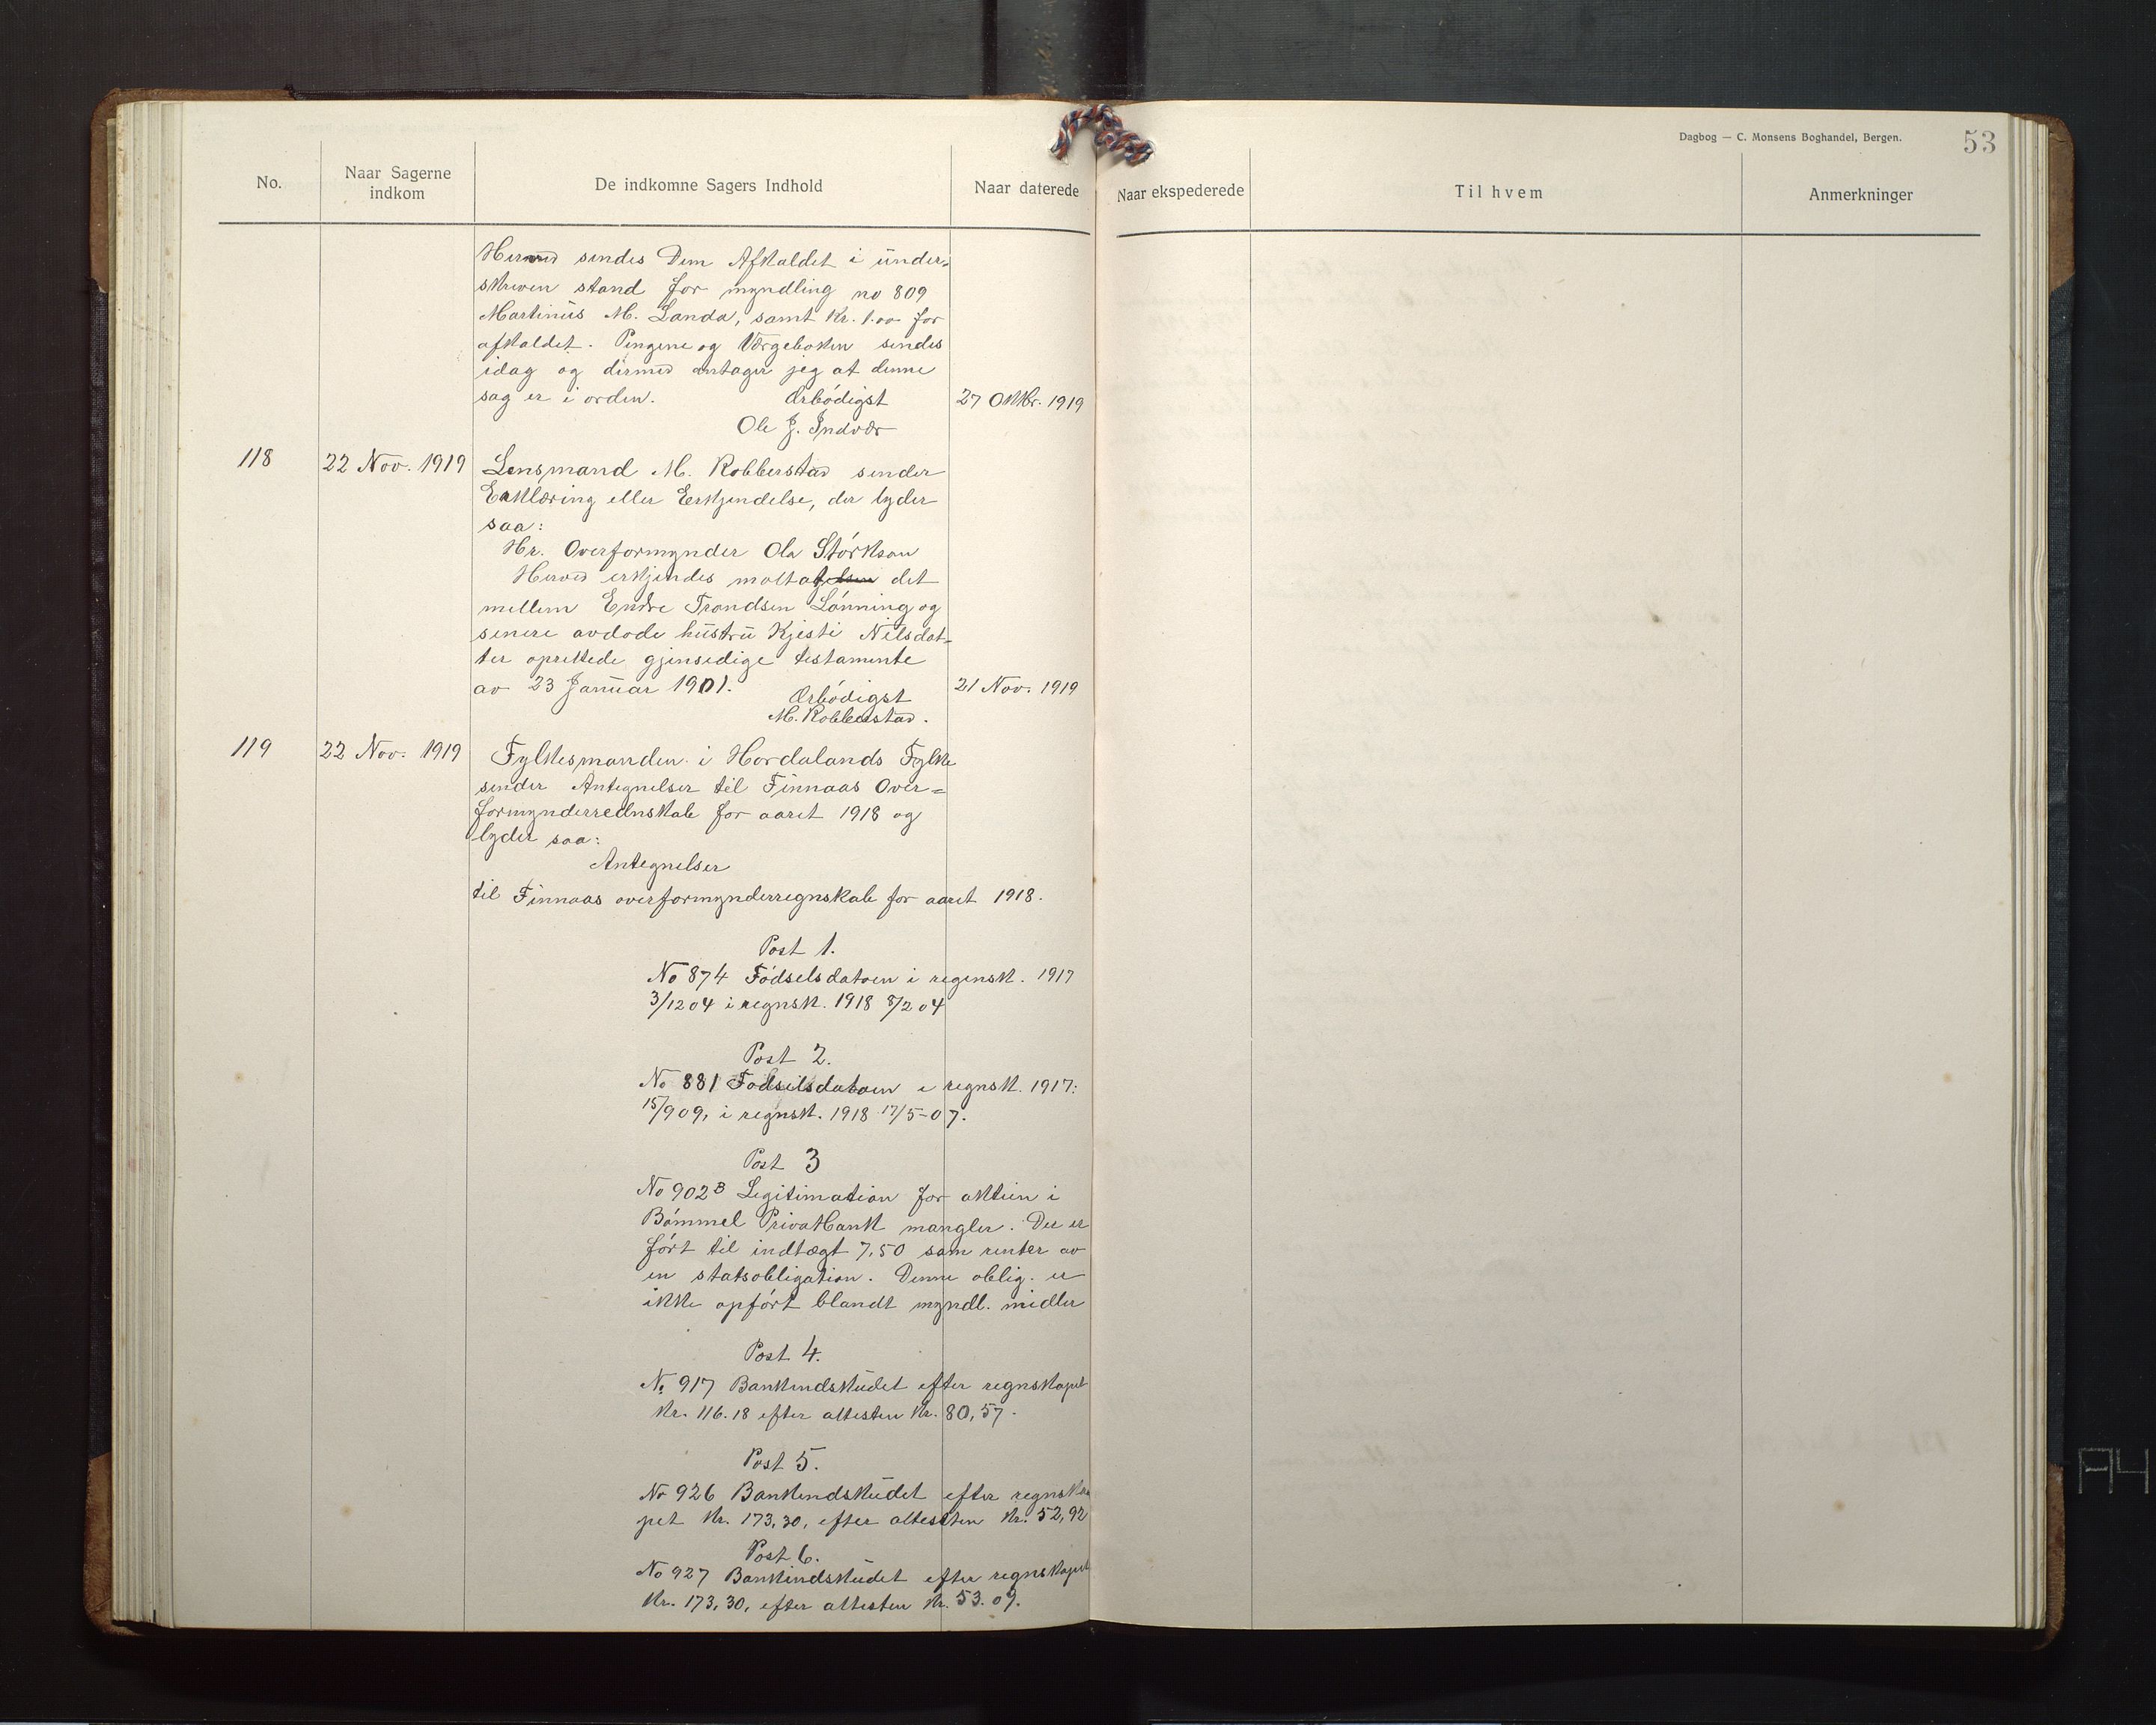 Dagbog — C. Monsens Boghandel, Bergen.
53
No.
Naar Sagerne indkom
De indkomne Sagers Indhold
Naar daterede
Naar ekspederede
Til hvem
Anmerkninger
Hermed sindes Dem Afkaldet i under-
skreven stand for myndling no 809
Martinus M. Landa, samt Kr. 1.00 for
afkaldet. Pengene og Værgeboken sendes
idag og dermed antager jeg at denne
sag er i orden. Ærbödigst 27 Oktbr. 1919
Ole J. Indvær
118 22 Nov. 1919 Lensmand M. Robberstad sender
Erklæring eller Eerkjendelse, der lyder
saa:
Hr. Overformynder Ola Störkson
Herved erkjendes mottat det
mellem Endre Trondsen Lönning og
senere avdøde hustru Kjesti Nilsdat-
ter oprettede gjensedige testamente
av 23 Januar 1901. 21 Nov. 1919
Ærbödigst
M. Robberstad.
119 22 Nov. 1919 Fylkesmanden i Hordalands Fylke
sender Antegnelser til Finnaas Over=
formynderrednskab for aaret 1918 og
lyder saa:
Antegnelser
til Finnaas overformynderregnskab for aaret 1918.
Post 1.
No 874 Födselsdatoen i regensk. 1917
3/12 04 i regnsk. 1918 8/2 04
Post 2.
No 881 Fodselsdatoen i regnsk. 1917:
15/9 09, i regnsk. 1918 17/5-07.
Post 3
No 902 B Legitimation for aktien i
Bömmel Privatbank mangler. Der er
fört til indtægt 7,50 som renter av
en statsobligation. Denne oblig. er
ikke opfört blandt myndl. midler
Post 4.
No 917 Bankindskudet efter regnskapet
Kr. 116.18 efter attesten Kr. 80,57.
Post 5.
No 926 Bankendskudet efter regnska
pet Kr. 173,30, efter attesten Kr. 52,92
Post 6.
No 927 Bankindskudet efter regnskapet
Kr. 173,30, efter attesten Kr. 53.09.
A4